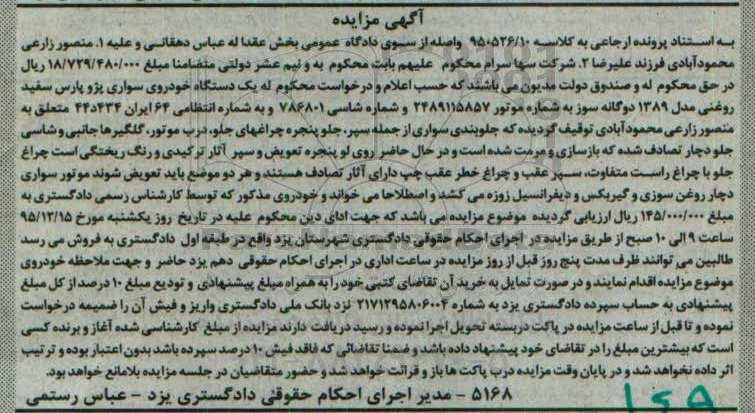 آگهی مزایده
به استناد پرونده ارجاعی به کلاسه ۹۵۰۵۲۶/۱۰ واصله از سوی دادگاه عمومی بخش عقدا له عباس دهقانی و علیه ۱. منصور زارعی
محمودآبادی فرزند علیرضا ۲. شرکت سها سرام محکوم علیهم بابت محکوم به و نیم عشر دولتی متضامنا مبلغ ۱۸/۷۲۹/۴۸۰/۰۰۰ ریال
در حق محکوم له و صندوق دولت مدیون می باشند که حسب اعلام و درخواست محکوم له یک دستگاه خودروی سواری پژو پارس سفید
روغنی مدل ۱۳۸۹ دوگانه سوز به شماره موتور ۲۴۸۹۱۱۵۸۵۷ و شماره شاسی ۷۸۶۸۰۱ و به شماره انتظامی ۶۴ ایران ۴۳۴د۴۴ متعلق به
منصور زارعی محمودآبادی توقیف گردیده که جلوبندی سواری از جمله سپر، جلو پنجره چراغهای جلو، درب موتور، گلگیرها جانبی و شاسی
جلو دچار تصادف شده که بازسازی و مرمت شده است و در حال حاضر روی لو پنجره تعویض و سپر آثار ترکیدی و رنگ ریختگی است چراغ
جلو با چراغ راست متفاوت، سپر عقب و چراغ خطر عقب چپ دارای آثار تصادف هستند و هر دو موضع باید تعویض شوند موتور سواری
دچار روغن سوزی و گیربکس و دیفرانسیل زوزه می کشد و اصطلاحا می خواند و خودروی مذکور که توسط کارشناس رسمی دادگستری به
مبلغ ۱۴۵/۰۰۰/۰۰۰ ریال ارزیابی گردیده موضوع مزایده می باشد که جهت ادای دین محکوم علیه در تاریخ روز یکشنبه مورخ ۹۵/۱۲/۱۵
ساعت ۹ الی ۱۰ صبح از طریق مزایده در اجرای احکام حقوقی دادگستری شهرستان یزد واقع در طبقه اول دادگستری به فروش می رسد
طالبین می توانند ظرف مدت پنج روز قبل از روز مزایده در ساعت اداری در اجرای احکام حقوقی دهم یزد حاضر و جهت ملاحظه خودروی
موضوع مزایده اقدام نمایند و در صورت تمایل به خرید آن تقاضای کتبی خود را به همراه مبلغ پیشنهادی و تودیع مبلغ ۱۰ درصد از کل مبلغ
پیشنهادی به حساب سپرده دادگستری یزد به شماره ۲۱۷۱۲۹۵۸۰۶۰۰۴ نزد بانک ملی دادگستری واریز و فیش آن را ضمیمه درخواست
نموده و تا قبل از ساعت مزایده در پاکت دربسته تحویل اجرا نموده و رسید دریافت دارند مزایده از مبلغ کارشناسی شده آغاز و برنده کسی
است که بیشترین مبلغ را در تقاضای خود پیشنهاد داده باشد و ضمنا تقاضائی که فاقد فیش ۱۰ درصد سپرده باشد بدون اعتبار بوده و ترتیب
اثر داده نخواهد شد و در پایان وقت مزایده درب پاکت ها باز و قرائت خواهد شد و حضور متقاضیان در جلسه مزایده بلامانع خواهد بود.
۵۱۶۸ - مدیر اجرای احکام حقوقی دادگستری یزد - عباس رستمی